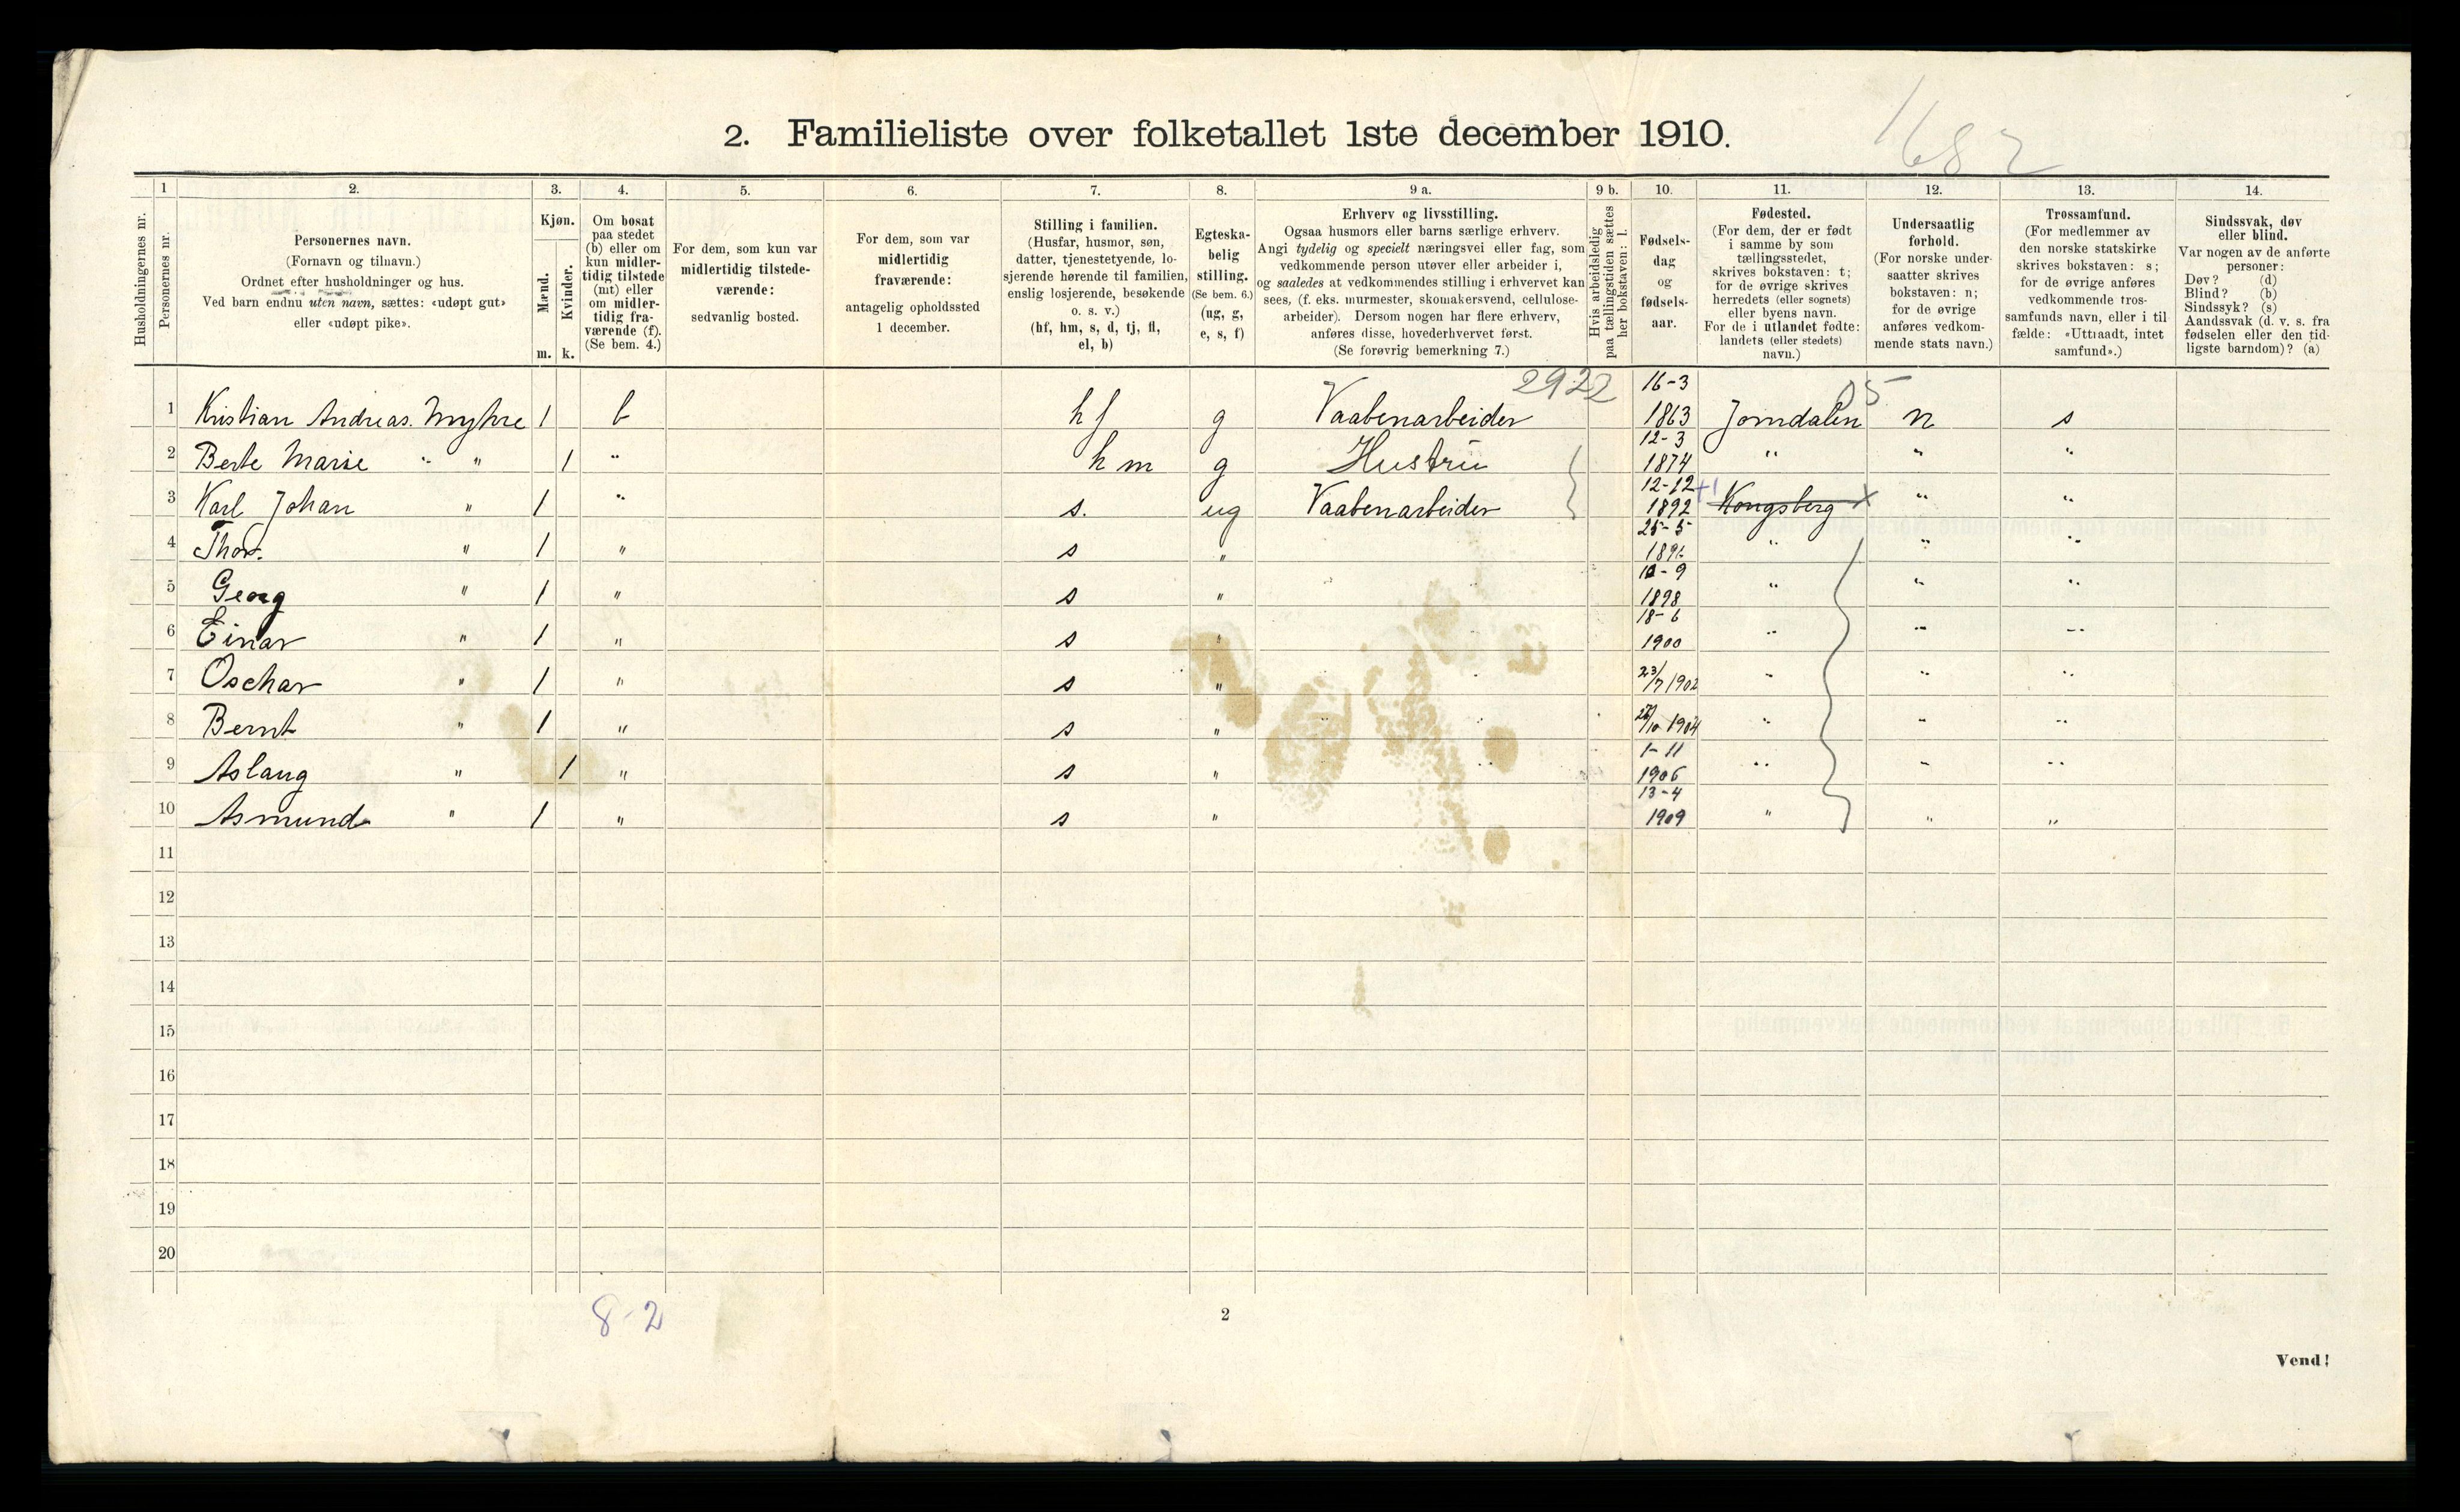 1682
2. Familieliste over folketallet 1ste december 1910.
1 2. 3. 4. 5. 6. 7. 8. 9 a. 9 b. 10. 11. 12. 13. 14.
Husholdningernes nr.
Personernes nr.
Personernes navn.
(Fornavn og tilnavn.)
Ordnet efter husholdninger og hus.
Ved barn endnu uten navn, sættes: «udøpt gut»
eller «udøpt pike».
Kjøn.
Mænd.
Kvinder.
m. k.
Om bosat
paa stedet
(b) eller om
kun midler-
tidig tilstede
(mt) eller
om midler-
tidig fra-
værende (f).
(Se bem. 4.)
For dem, som kun var
midlertidig tilstede-
værende:
sedvanlig bosted.
For dem, som var
midlertidig
fraværende:
antagelig opholdssted
1 december.
Stilling i familien.
(Husfar, husmor, søn,
datter, tjenestetyende, lo-
sjerende hørende til familien,
enslig losjerende, besøkende
o. s. v.)
(hf, hm, s, d, tj, fl,
el, b)
Egteska-
belig
stilling.
(Se bem. 6.)
(ug, g,
e, s, f)
Erhverv og livsstilling.
Ogsaa husmors eller barns særlige erhverv.
Angi tydelig og specielt næringsvei eller fag, som
vedkommende person utøver eller arbeider i,
og saaledes at vedkommendes stilling i erhvervet kan
sees, (f. eks. murmester, skomakersvend, cellulose-
arbeider). Dersom nogen har flere erhverv,
anføres disse, hovederhvervet først.
(Se forøvrig bemerkning 7.)
Hvis arbeidsledig
paa tællingstiden sættes
her bokstaven: l.
Fødsels-
dag
og
fødsels-
aar.
Fødested.
(For dem, der er født
i samme by som
tællingsstedet,
skrives bokstaven: t;
for de øvrige skrives
herredets (eller sognets)
eller byens navn.
For de i utlandet fødte:
landets (eller stedets)
navn.)
Undersaatlig
forhold.
(For norske under-
saatter skrives
bokstaven: n;
for de øvrige
anføres vedkom-
mende stats navn.)
Trossamfund.
(For medlemmer av
den norske statskirke
skrives bokstaven: s;
for de øvrige anføres
vedkommende tros-
samfunds navn, eller i til
fælde: «Uttraadt, intet
samfund».)
Sindssvak, døv
eller blind.
Var nogen av de anførte
personer:
Døv? (d)
Blind? (b)
Sindssyk? (s)
Aandssvak (d. v. s. fra
fødselen eller den tid-
ligste barndom)? (a)
2922 05
1 Kristian Andreas. Myhre 1 b hf g Vaabenarbeider 16-3 1863 Jomdalen n s
2 Berte Marie " " 1 " hm g Hustru 12-3 1874 " " "
3 Karl Johan " 1 " s. ug Vaabenarbeider 12-12 1892 +1 Kongsberg x " "
4 Thor. " 1 " s " 25-5 " " "
5 Georg " 1 " s " -9 1898 " " "
6 Einar " 1 " s " 18-6 1900 " " "
7 Oschar " 1 " s " 23/7 1902 " " "
8 Bernt " 1 " s " /10 1904 " " "
9 Aslaug " 1 " s " 1-11 1906 " " "
10 Asmund " 1 " s " 13-4 1909 " " "
11
12
13
14
15
16
17
18
19
20
8-2
2
Vend!